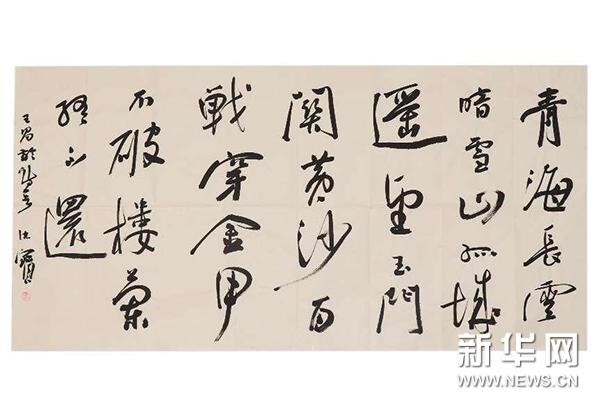 青海長雲
暗雪山孤城
遥望玉門
關黄沙百
戰穿金甲
不破樓蘭
終不還
王昌齡
新华网
WWW.NEWS.CN